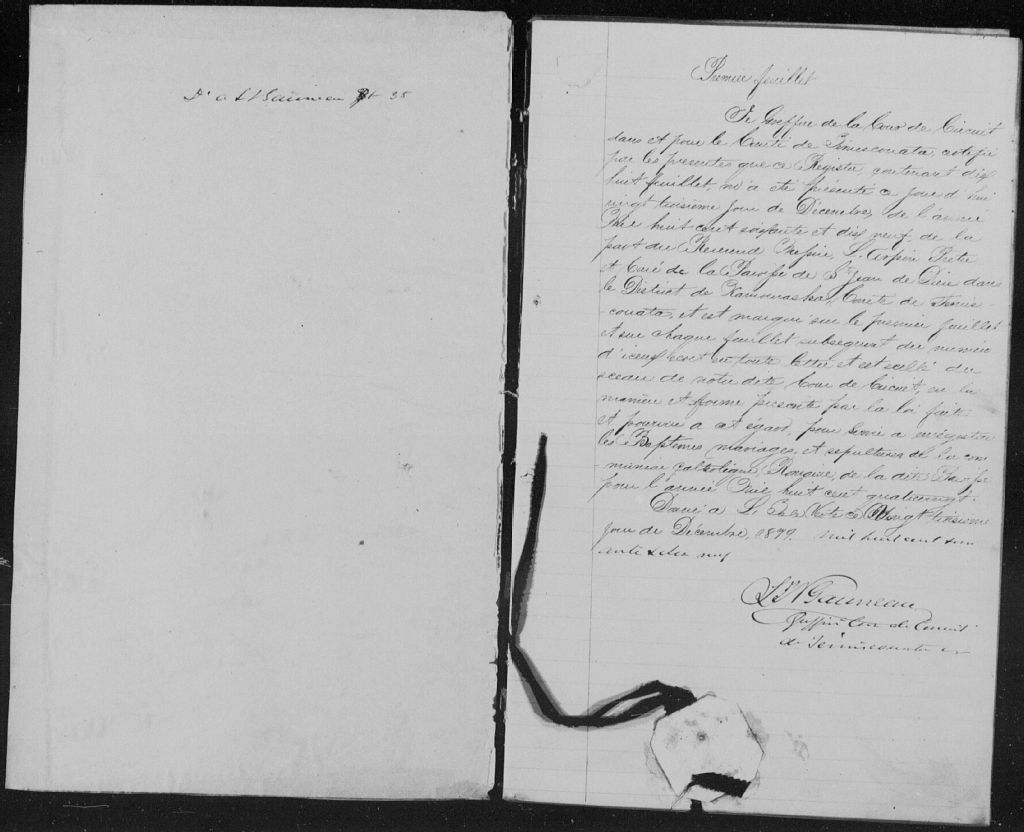 Dû à L N Gauvreau 35
Premier feuillet
Je Greffier de la Cour de Circuit
dans et pour le Comté de Temiscouata, certifie
par les presentes que ce Registre, contenant dix
huit feuillet, m'a eté présenté ce jour d'hui
vingt troisieme jour de Décembre, de l'année
Mil huit cent soixante et dix neuf, de la
part du Reverend Messire, L. Arpin Prêtre
et Curé de la Paroisse de St Jean de Dieu dans
le District de Kamouraska, Comté de Temis-
-couata, et est marqué sur le premier feuillet
et sur chaque feuillet subsequent du numéro
d'icelui ecrit en toute lettre et est scellé du
sceau de notre dite Cour de Circuit, en la
manière et forme prescrite par la loi faite
et pourvue à cet egard, pour servir à enrégistrer
les Baptemes, mariages, et sepultures de la com
-munion Catholique, Romaine, de la dite Paroisse
pour l'année Mil huit cent quatrevingt.
Donné à L'Isle Verte ce Vingt troisieme
jour de Décembre, 1879. mil huit cent soix
ante & dix neuf
L N Gauvreau
Greffier Cour de Circuit
de Temiscouata